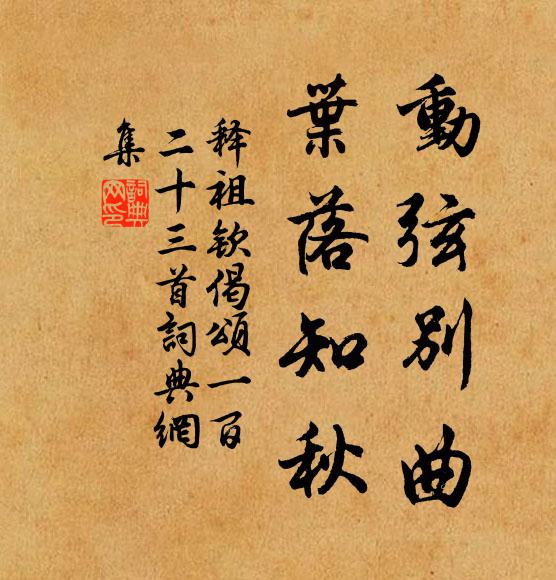 動弦别曲
葉落知秋
释祖钦偈頌一百
二十三首詞典網
集
詞典
网印